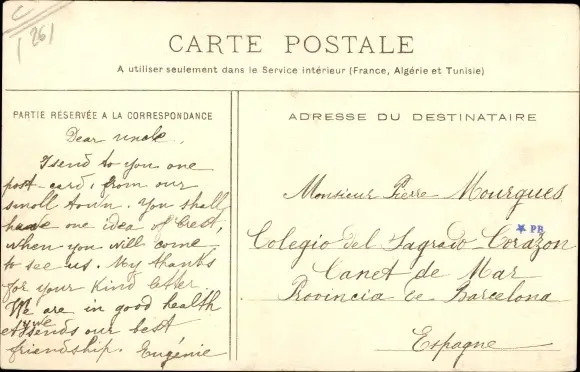 C
1261
CARTE POSTALE
A utiliser seulement dans le Service intérieur (France, Algérie et Tunisie)
PARTIE RÉSERVÉE A LA CORRESPONDANCE
Dear uncle,
I send to you one
post-card, from our
small town. You shall
have one idea of Crest,
when you will come
to see us. My thanks
for your kind letter.
We are in good health
et we sends our best
friendship. Eugénie
ADRESSE DU DESTINATAIRE
Monsieur Pierre Mourgues
Colegio del Sagrado-Corazon
Canet de Mar
Provincia de Barcelona
Espagne
PB